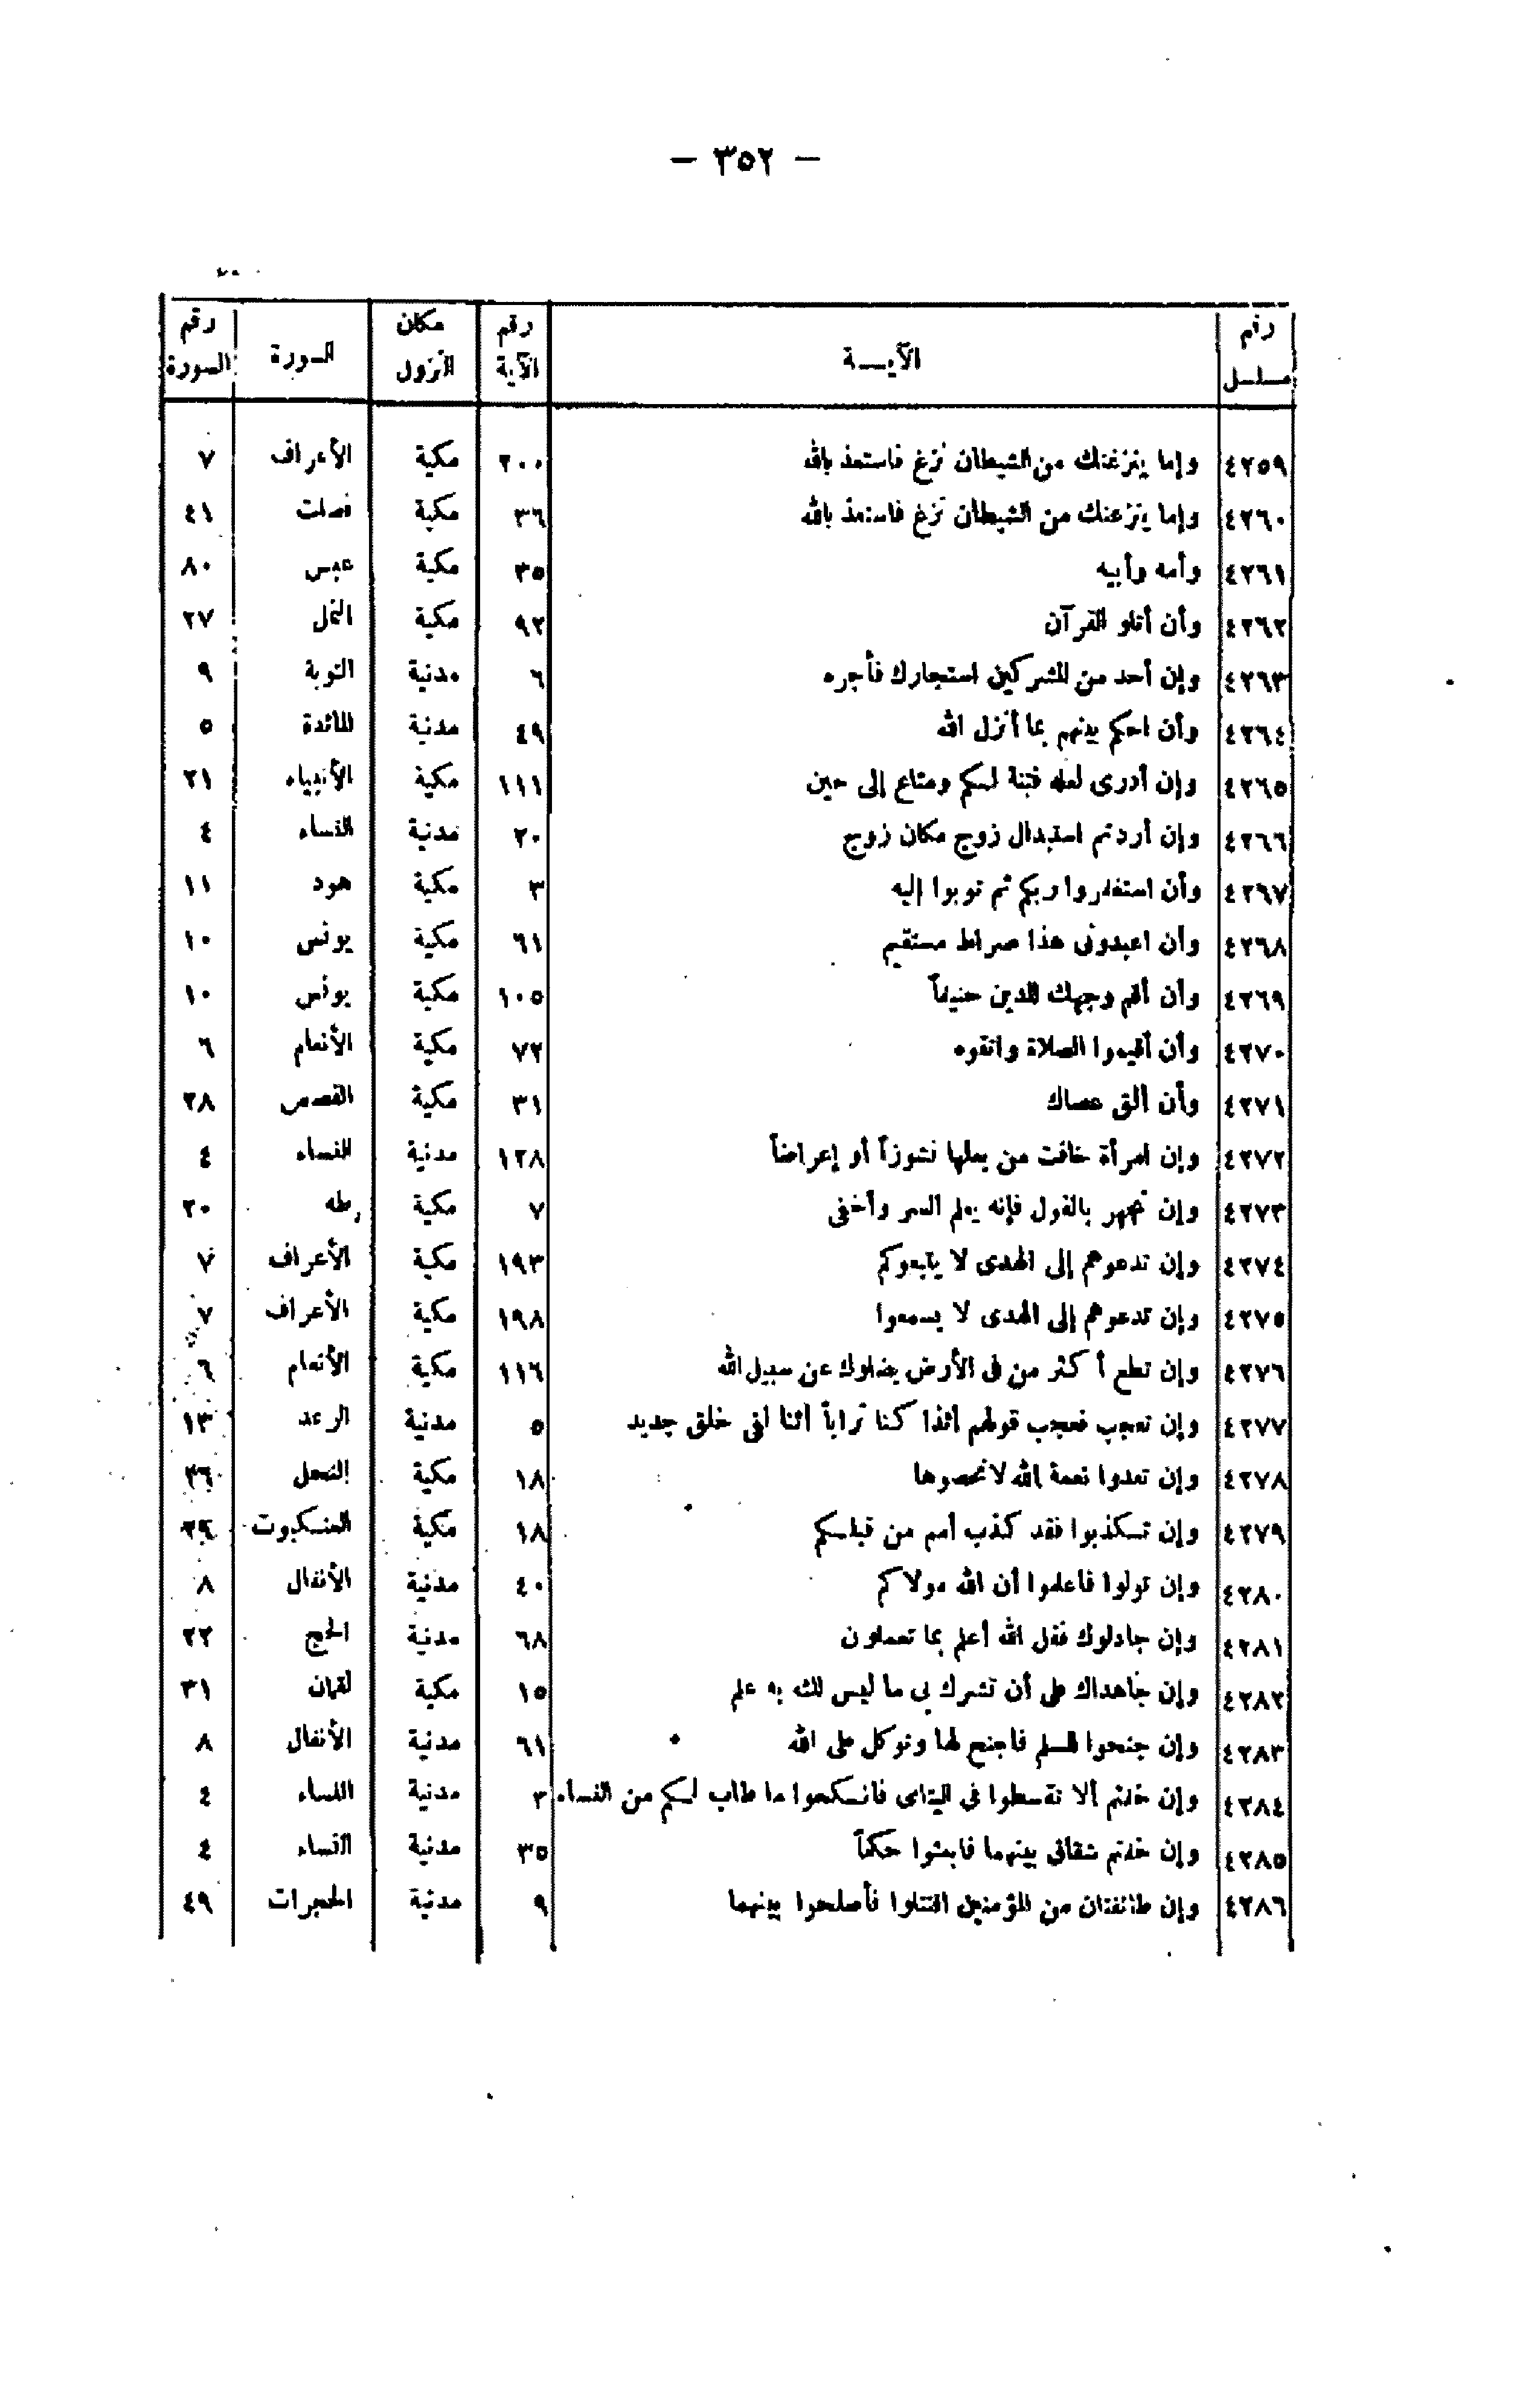 — ٣٥٢ —
رقم مسلسل الآيـــة رقم الآية مكان النزول السورة رقم السورة
٤٢٥٩ وإما ينزغنك من الشيطان نزغ فاستعذ بالله ٢٠٠ مكية الأعراف ٧
٤٢٦٠ وإما ينزغنك من الشيطان نزغ فاستعذ بالله ٣٦ مكية فصلت ٤١
٤٢٦١ وأمه وأبيه ٣٥ مكية عبس ٨٠
٤٢٦٢ وأن أتلو القرآن ٩٢ مكية النمل ٢٧
٤٢٦٣ وإن أحد من المشركين استجارك فأجره ٦ مدنية التوبة ٩
٤٢٦٤ وأن احكم بينهم بما أنزل الله ٤٩ مدنية المائدة ٥
٤٢٦٥ وإن أدرى لعله فتنة لكم ومتاع إلى حين ١١١ مكية الأنبياء ٢١
٤٢٦٦ وإن أردتم استبدال زوج مكان زوج ٢٠ مدنية النساء ٤
٤٢٦٧ وأن استغفروا ربكم ثم توبوا إليه ٣ مكية هود ١١
٤٢٦٨ وأن اعبدونى هذا صراط مستقيم ٦١ مكية يونس ١٠
٤٢٦٩ وأن أقم وجهك للدين حنيفاً ١٠٥ مكية يونس ١٠
٤٢٧٠ وأن أقيموا الصلاة واتقوه ٧٢ مكية الأنعام ٦
٤٢٧١ وأن ألق عصاك ٣١ مكية القصص ٢٨
٤٢٧٢ وإن امرأة خافت من بعلها نشوزاً أو إعراضاً ١٢٨ مدنية النساء ٤
٤٢٧٣ وإن تجهر بالقول فإنه يعلم السر وأخفى ٧ مكية طه ٢٠
٤٢٧٤ وإن تدعوهم إلى الهدى لا يتبعوكم ١٩٣ مكية الأعراف ٧
٤٢٧٥ وإن تدعوهم إلى الهدى لا يسمعوا ١٩٨ مكية الأعراف ٧
٤٢٧٦ وإن تطع أكثر من فى الأرض يضلوك عن سبيل الله ١١٦ مكية الأنعام ٦
٤٢٧٧ وإن تعجب فعجب قولهم أئذا كنا تراباً أئنا لفى خلق جديد ٥ مدنية الرعد ١٣
٤٢٧٨ وإن تعدوا نعمة الله لا تحصوها ١٨ مكية النحل
٤٢٧٩ وإن تكذبوا فقد كذب أمم من قبلكم ١٨ مكية العنكبوت ٢٩
٤٢٨٠ وإن تولوا فاعلموا أن الله مولاكم ٤٠ مدنية الأنفال ٨
٤٢٨١ وإن جادلوك فقل الله أعلم بما تعملون ٦٨ مدنية الحج ٢٢
٤٢٨٢ وإن جاهداك على أن تشرك بى ما ليس لك به علم ١٥ مكية لقمان ٣١
٤٢٨٣ وإن جنحوا للسلم فاجنح لها وتوكل على الله ٦١ مدنية الأنفال ٨
٤٢٨٤ وإن خفتم ألا تقسطوا فى اليتامى فانكحوا ما طاب لكم من النساء ٣ مدنية النساء ٤
٤٢٨٥ وإن خفتم شقاق بينهما فابعثوا حكماً ٣٥ مدنية النساء ٤
٤٢٨٦ وإن طائفتان من المؤمنين اقتتلوا فأصلحوا بينهما ٩ مدنية الحجرات ٤٩